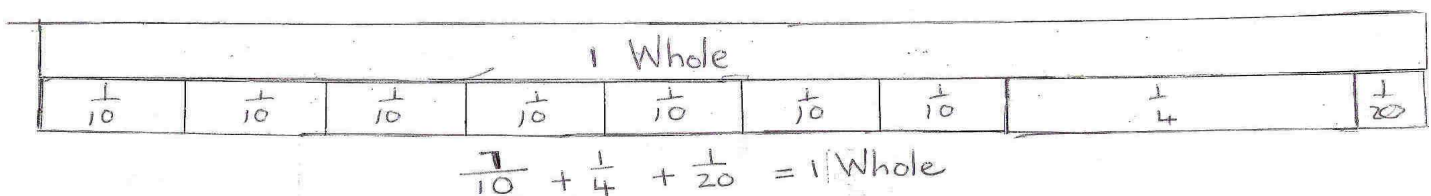 1 Whole
1/10 1/10 1/10 1/10 1/10 1/10 1/10 1/4 1/20
7/10 + 1/4 + 1/20 = 1 Whole